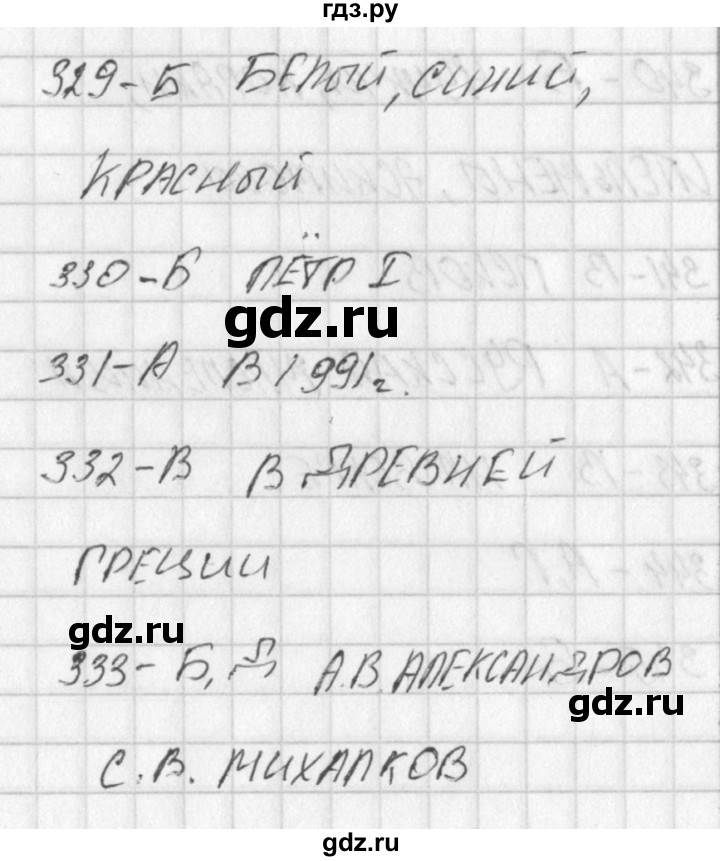 гдз.ру
329-Б БЕЛЫЙ, СИНИЙ,
КРАСНЫЙ
330-Б ПЁТР I
gdz.ru
331-А В 1991г.
332-В В ДРЕВНЕЙ
ГРЕЦИИ
gdz.ru
333-Б, Д А.В. АЛЕКСАНДРОВ
gdz.ru
С.В. МИХАЛКОВ
gdz.ru